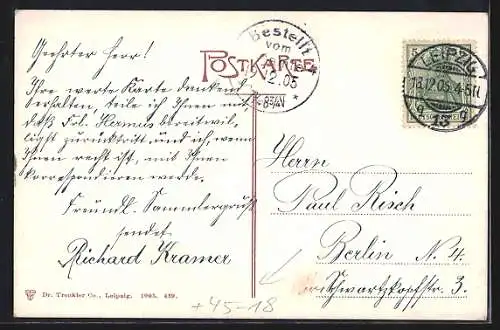 Geehrter Herr!
Ihre werte Karte dankend
erhalten, teile ich Ihnen mit,
daß Frl. Hermes bereitwil-
ligst zurücktritt und ich, wenn
Ihnen recht ist, mit Ihnen
korrespondieren werde.
Freundl. Sammlergruß
sendet
Richard Kramer
Dr. Trenkler Co., Leipzig. 1905. 439.
POSTKARTE
Bestellt
vom
12.05
LEIPZIG
13.12.05. 4-5N
5
Herrn
Paul Risch
Berlin N. 4.
Schwartzkopffstr. 3.
+45-18